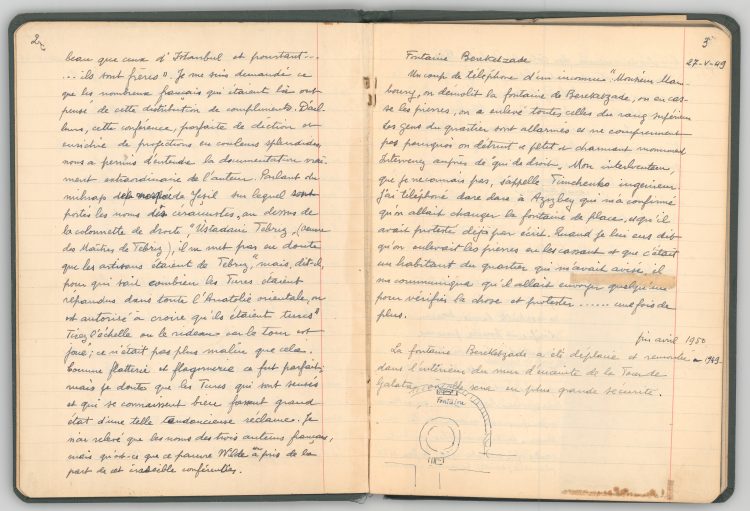 2
beau que ceux d'Istanbul et pourtant...
... ils sont frères". Je me suis demandé ce
que les nombreux français qui étaient là ont
pensé de cette distribution de compliments. D'ail-
leurs, cette conférence, parfaite de diction et
enrichie de projections en couleurs splendides,
nous a permis d'entendre la documentation vrai-
ment extraordinaire de l'auteur. Parlant du
mihrap de Yeşil sur lequel sont
portés les noms des céramistes, au dessus de
la colonnette de droite, "Ustadani Tebriz, (oeuvre
des Maîtres de Tebriz), il ne met pas en doute
que les artisans étaient de Tebriz," mais, dit-il,
pour qui sait combien les Turcs étaient
répandus dans toute l'Anatolie orientale, on
est autorisé à croire qu'ils étaient turcs"
Tirez l'échelle ou le rideau car le tour est
joué; ce n'était pas plus malin que cela.
Comme flatterie et flagornerie ce fut parfait;
mais je doute que les Turcs qui sont sensés
et qui se connaissent bien fassent grand
état d'une telle tendancieuse réclame. Je
n'ai relevé que les noms des trois auteurs français,
mais qu'est-ce que ce pauvre Wilde a pris de la
part de cet irascible conférencier.
3
Fontaine Bereketzade
27-V-49
Un coup de téléphone d'un inconnu: "Monsieur Mam-
boury, on démolit la fontaine de Bereketzade, on en cas-
se les pierres, on a enlevé toutes celles du rang supérieur
Les gens du quartier sont allarmés et ne comprennent
pas pourquoi on détruit ce petit et charmant monument
Intervenez auprès de "qui de droit". Mon interlocuteur,
que je ne connais pas, s'appelle Timchenko ingénieur.
J'ai téléphoné dare dare à Azizbey qui m'a confirmé
qu'on allait changer la fontaine de place, et qu'il
avait protesté déjà par écrit. Quand je lui eus dit
qu'on enlevait les pierres en les cassant et que c'était
un habitant du quartier qui m'avait avisé, il
me communiqua qu'il allait envoyer quelqu'un
pour vérifier la chose et protester ...... une fois de
plus.
fin avril 1950
La fontaine Bereketzade a été déplacée et remontée en 1949
dans l'intérieur du mur d'enceinte de la Tour de
Galata, où elle sera en plus grande sécurité.
Fontaine